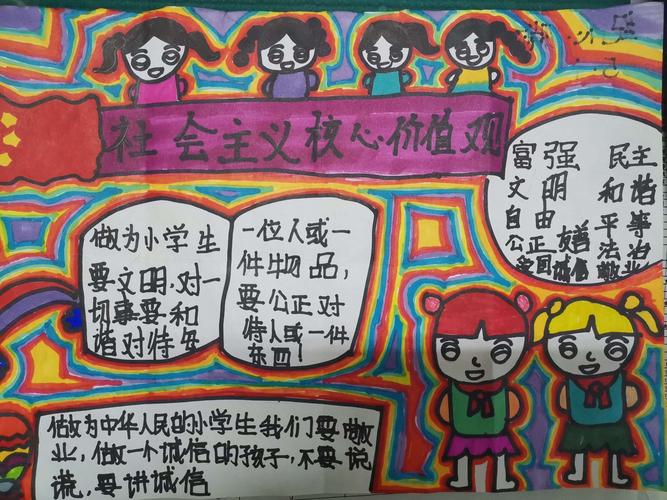 社会主义核心价值观
富强 民主
文明 和谐
自由 平等
公正 友善 法治
爱国 诚信 敬业
做为小学生
要文明,对一
切事要和
谐对待每
一位人或一
件物品,
要公正对
待人或一件
东西!
做为中华人民的小学生我们要敬
业,做一个诚信的孩子,不要说
谎,要讲诚信